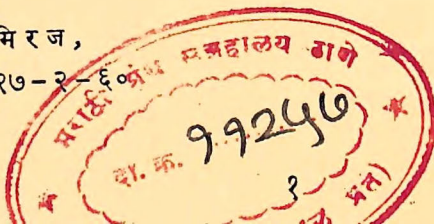 मिरज,
१७-२-६०
मराठी ग्रंथ संग्रहालय ठाणे
दा. क्र. ११२५७
१
प्रत)